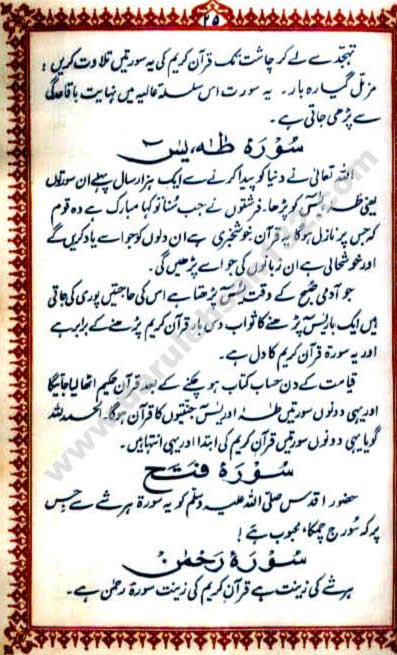 ۲۵
تہجد سے لے کر چاشت تک قرآن کریم کی یہ سورتیں تلاوت کریں :
مزمل گیارہ بار ۔ یہ سورت اس سلسلہ عالیہ میں نہایت باقاعدگی
سے پڑھی جاتی ہے ۔
سورۂ طٰہٰ، یٰس
اللہ تعالیٰ نے دنیا کو پیدا کرنے سے ایک ہزار سال پہلے ان سورتوں
یعنی طٰہٰ یٰسٓ کو پڑھا۔ فرشتوں نے جب سُنا تو کہا مبارک ہے وہ قوم
کہ جس پر نازل ہوگا یہ قرآن خوشخبری ہے ان دلوں کو جو اسے یاد کریں گے
اور خوشحالی ہے ان زبانوں کی جو اسے پڑھیں گی۔
جو آدمی صبح کے وقت یٰسٓ پڑھتا ہے اس کی حاجتیں پوری کی جاتی
ہیں ایک بار یٰسٓ پڑھنے کا ثواب دس بار قرآن کریم پڑھنے کے برابر ہے
اور یہ سورۃ قرآن کریم کا دل ہے ۔
قیامت کے دن حساب کتاب ہو چکنے کے بعد قرآن حکیم اٹھا لیا جائیگا
اور یہی دونوں سورتیں طٰہٰ اور یٰسٓ جنتیوں کا قرآن ہوگا۔ الحمد للہ
گویا یہی دونوں سورتیں قرآن کریم کی ابتدا اور یہی انتہا ہیں۔
سورۂ فتح
حضور اقدس صلی اللہ علیہ وسلم کو یہ سورۃ ہر شے سے جس
پر کہ سورج چمکا، محبوب ہے !
سورۂ رحمٰن
ہر شے کی زینت ہے قرآن کریم کی زینت سورۃ رحمٰن ہے ۔